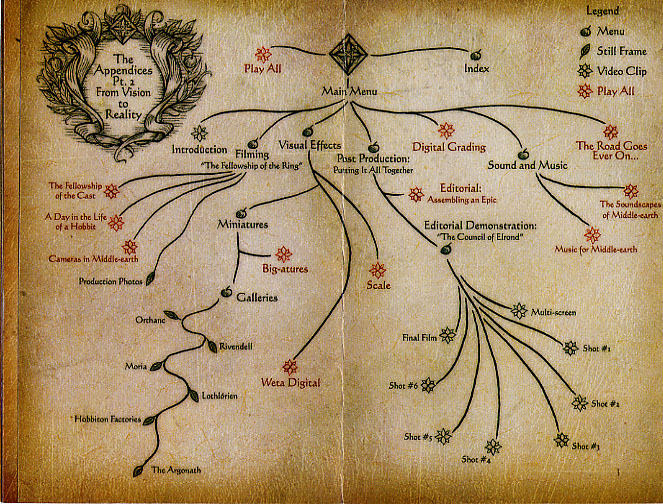 The
Appendices
Pt. 2
From Vision
to
Reality
Legend
Menu
Still Frame
Video Clip
Play All
Play All
Index
Main Menu
Introduction
Filming
"The Fellowship of the Ring"
Visual Effects
Post Production:
Putting It All Together
Digital Grading
Sound and Music
The Road Goes
Ever On...
The Fellowship
of the Cast
A Day in the Life
of a Hobbit
Cameras in Middle-earth
Production Photos
Miniatures
Big-atures
Galleries
Orthanc
Rivendell
Moria
Lothlórien
Hobbiton Factories
The Argonath
Weta Digital
Scale
Editorial:
Assembling an Epic
Editorial Demonstration:
"The Council of Elrond"
The Soundscapes
of Middle-earth
Music for Middle-earth
Multi-screen
Final Film
Shot #1
Shot #6
Shot #2
Shot #5
Shot #4
Shot #3